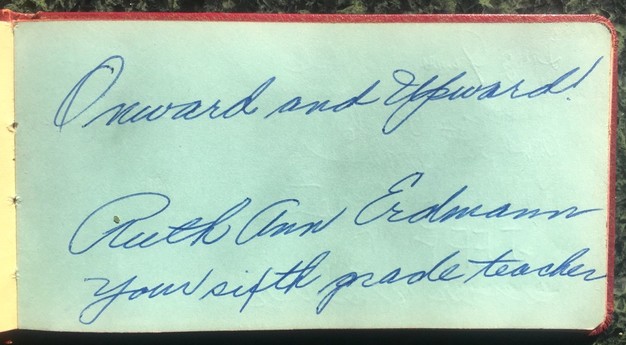 Onward and Upward!
Ruth Ann Erdmann
Your sixth grade teacher